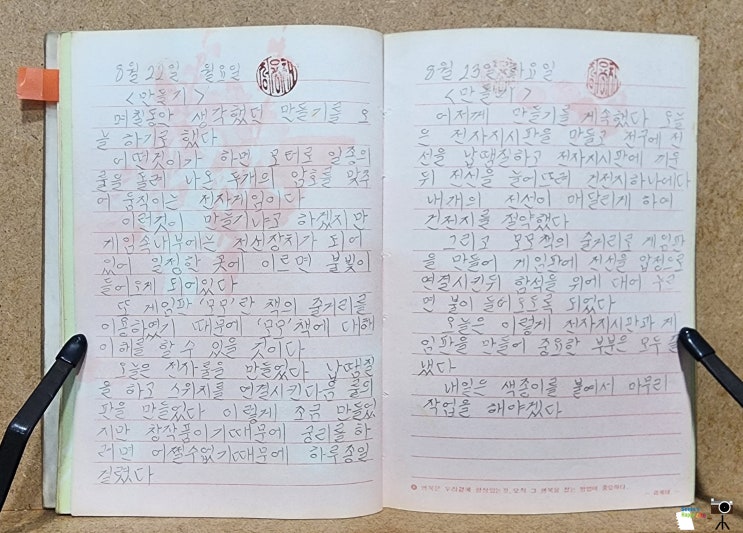 8월 22일 월요일
<만들기>
며칠동안 생각했던 만들기를 오
늘 하기로 했다
어떤것이가 하면 모터로 일종의
룰을 돌려 나온 두개의 암호를 맞추
어 움직이는 전자게임이다
이런것이 만들기냐고 하겠지만
게임속내부에는 전선장치가 되어
있어 일정한 곳에 이르면 불빛이
들어오게 되어있다
또 게임판 '모모'란 책의 줄거리를
이용하였기 때문에 '모모'책에 대해
이해를 할 수 있을 것이다
오늘은 전자룰을 만들었다 납땜질
을 하고 스위치를 연결시킨다음 룰의
판을 만들었다 이렇게 조금 만들었
지만 창작품이기때문에 궁리를 하
려면 어쩔수없기때문에 하루종일
걸렸다
8월 23일 화요일
<만들기>
어저께 만들기를 계속했다 오늘
은 전자지시판을 만들고 전구에 전
선을 납땜질하고 전자지시판에 끼운
뒤 전선을 늘어뜨려 건전지하나에다
네개의 전선이 매달리게 하여
건전지를 절약했다
그리고 모모책의 줄거리로 게임판
을 만들어 게임판에 전선을 압정으로
연결시킨뒤 함석을 위에 대어 누르
면 불이 들어오도록 되었다
오늘은 이렇게 전자지시판과 게
임판을 만들어 중요한 부분은 모두 끝
냈다
내일은 색종이를 붙여서 마무리
작업을 해야겠다